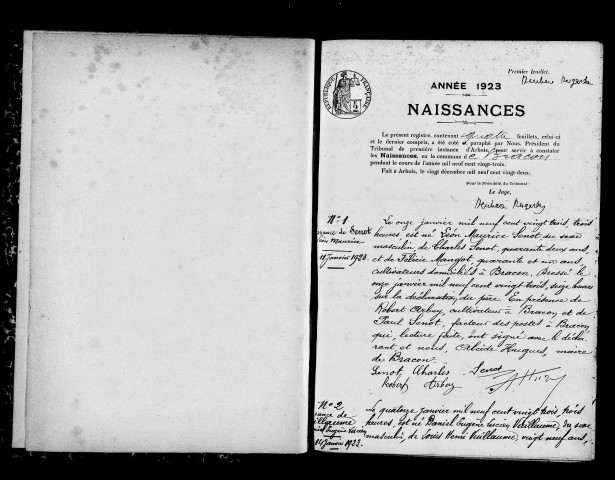 Premier feuillet.
RÉPUBLIQUE FRANÇAISE
ANNÉE 1923
NAISSANCES
Le présent registre, contenant quatre feuillets, celui-ci
et le dernier compris, a été coté et paraphé par Nous, Président du
Tribunal de première instance d'Arbois, pour servir à constater
les Naissances, en la commune de Bracon
pendant le cours de l'année mil neuf cent vingt-trois.
Fait à Arbois, le vingt décembre mil neuf cent vingt-deux.
Pour le Président du Tribunal:
Le Juge,
N° 1
de Senot
Maurice
11 Janvier 1923.
Le onze janvier mil neuf cent vingt trois, trois
heures, est né Léon Maurice Senot du sexe
masculin, de Charles Senot, quarante deux ans,
et de Félicie Mangot, quarante et ans,
cultivateurs domiciliés à Bracon. Dressé le
onze janvier mil neuf cent vingt trois, seize heures
sur la déclaration du père. En présence de
Robert Arboy, cultivateur à Bracon et de
Paul Senot, facteur des postes à Bracon
qui, lecture faite, ont signé avec le décla-
rant et nous, Alcide Hugues, maire
de Bracon.
Senot Charles Senot
Robert Arboy
N° 2
de
Vuillaume
Eugène Lucien
14 Janvier 1923.
Le quatorze janvier mil neuf cent vingt trois, trois
heures, est né Daniel Eugène Lucien Vuillaume, du sexe
masculin, de Louis Henri Vuillaume, vingt neuf ans,